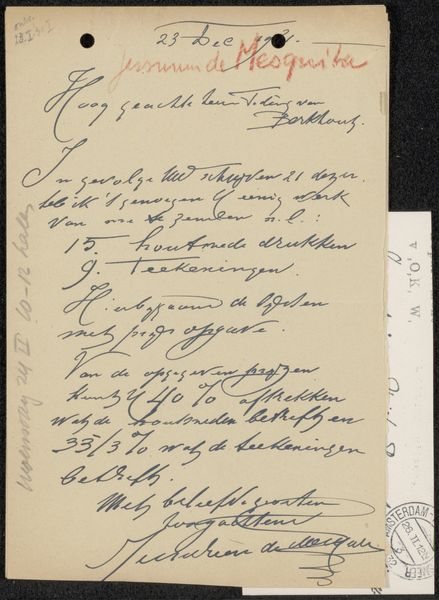 23 Dec
Jessurun de Mesquita
Hooggeachte heer Teding van
Berkhout,
In gevolge Uw schrijven 21 dezer
heb ik 't genoegen U eenig werk
van me te zenden n.l.:
15. houtsnede drukken
9. Teekeningen.
Hierbijgaand de lijsten
met prijs opgave.
Van de opgegeven prijzen
kunt U 40% aftrekken
wat de houtsneden betreft en
33 1/3% wat de teekeningen
betreft.
Met beleefde groeten
hoogachtend
de Mesquita
woensdag 24 II 10-12 halen
V.O.K. W.
AMSTERDAM